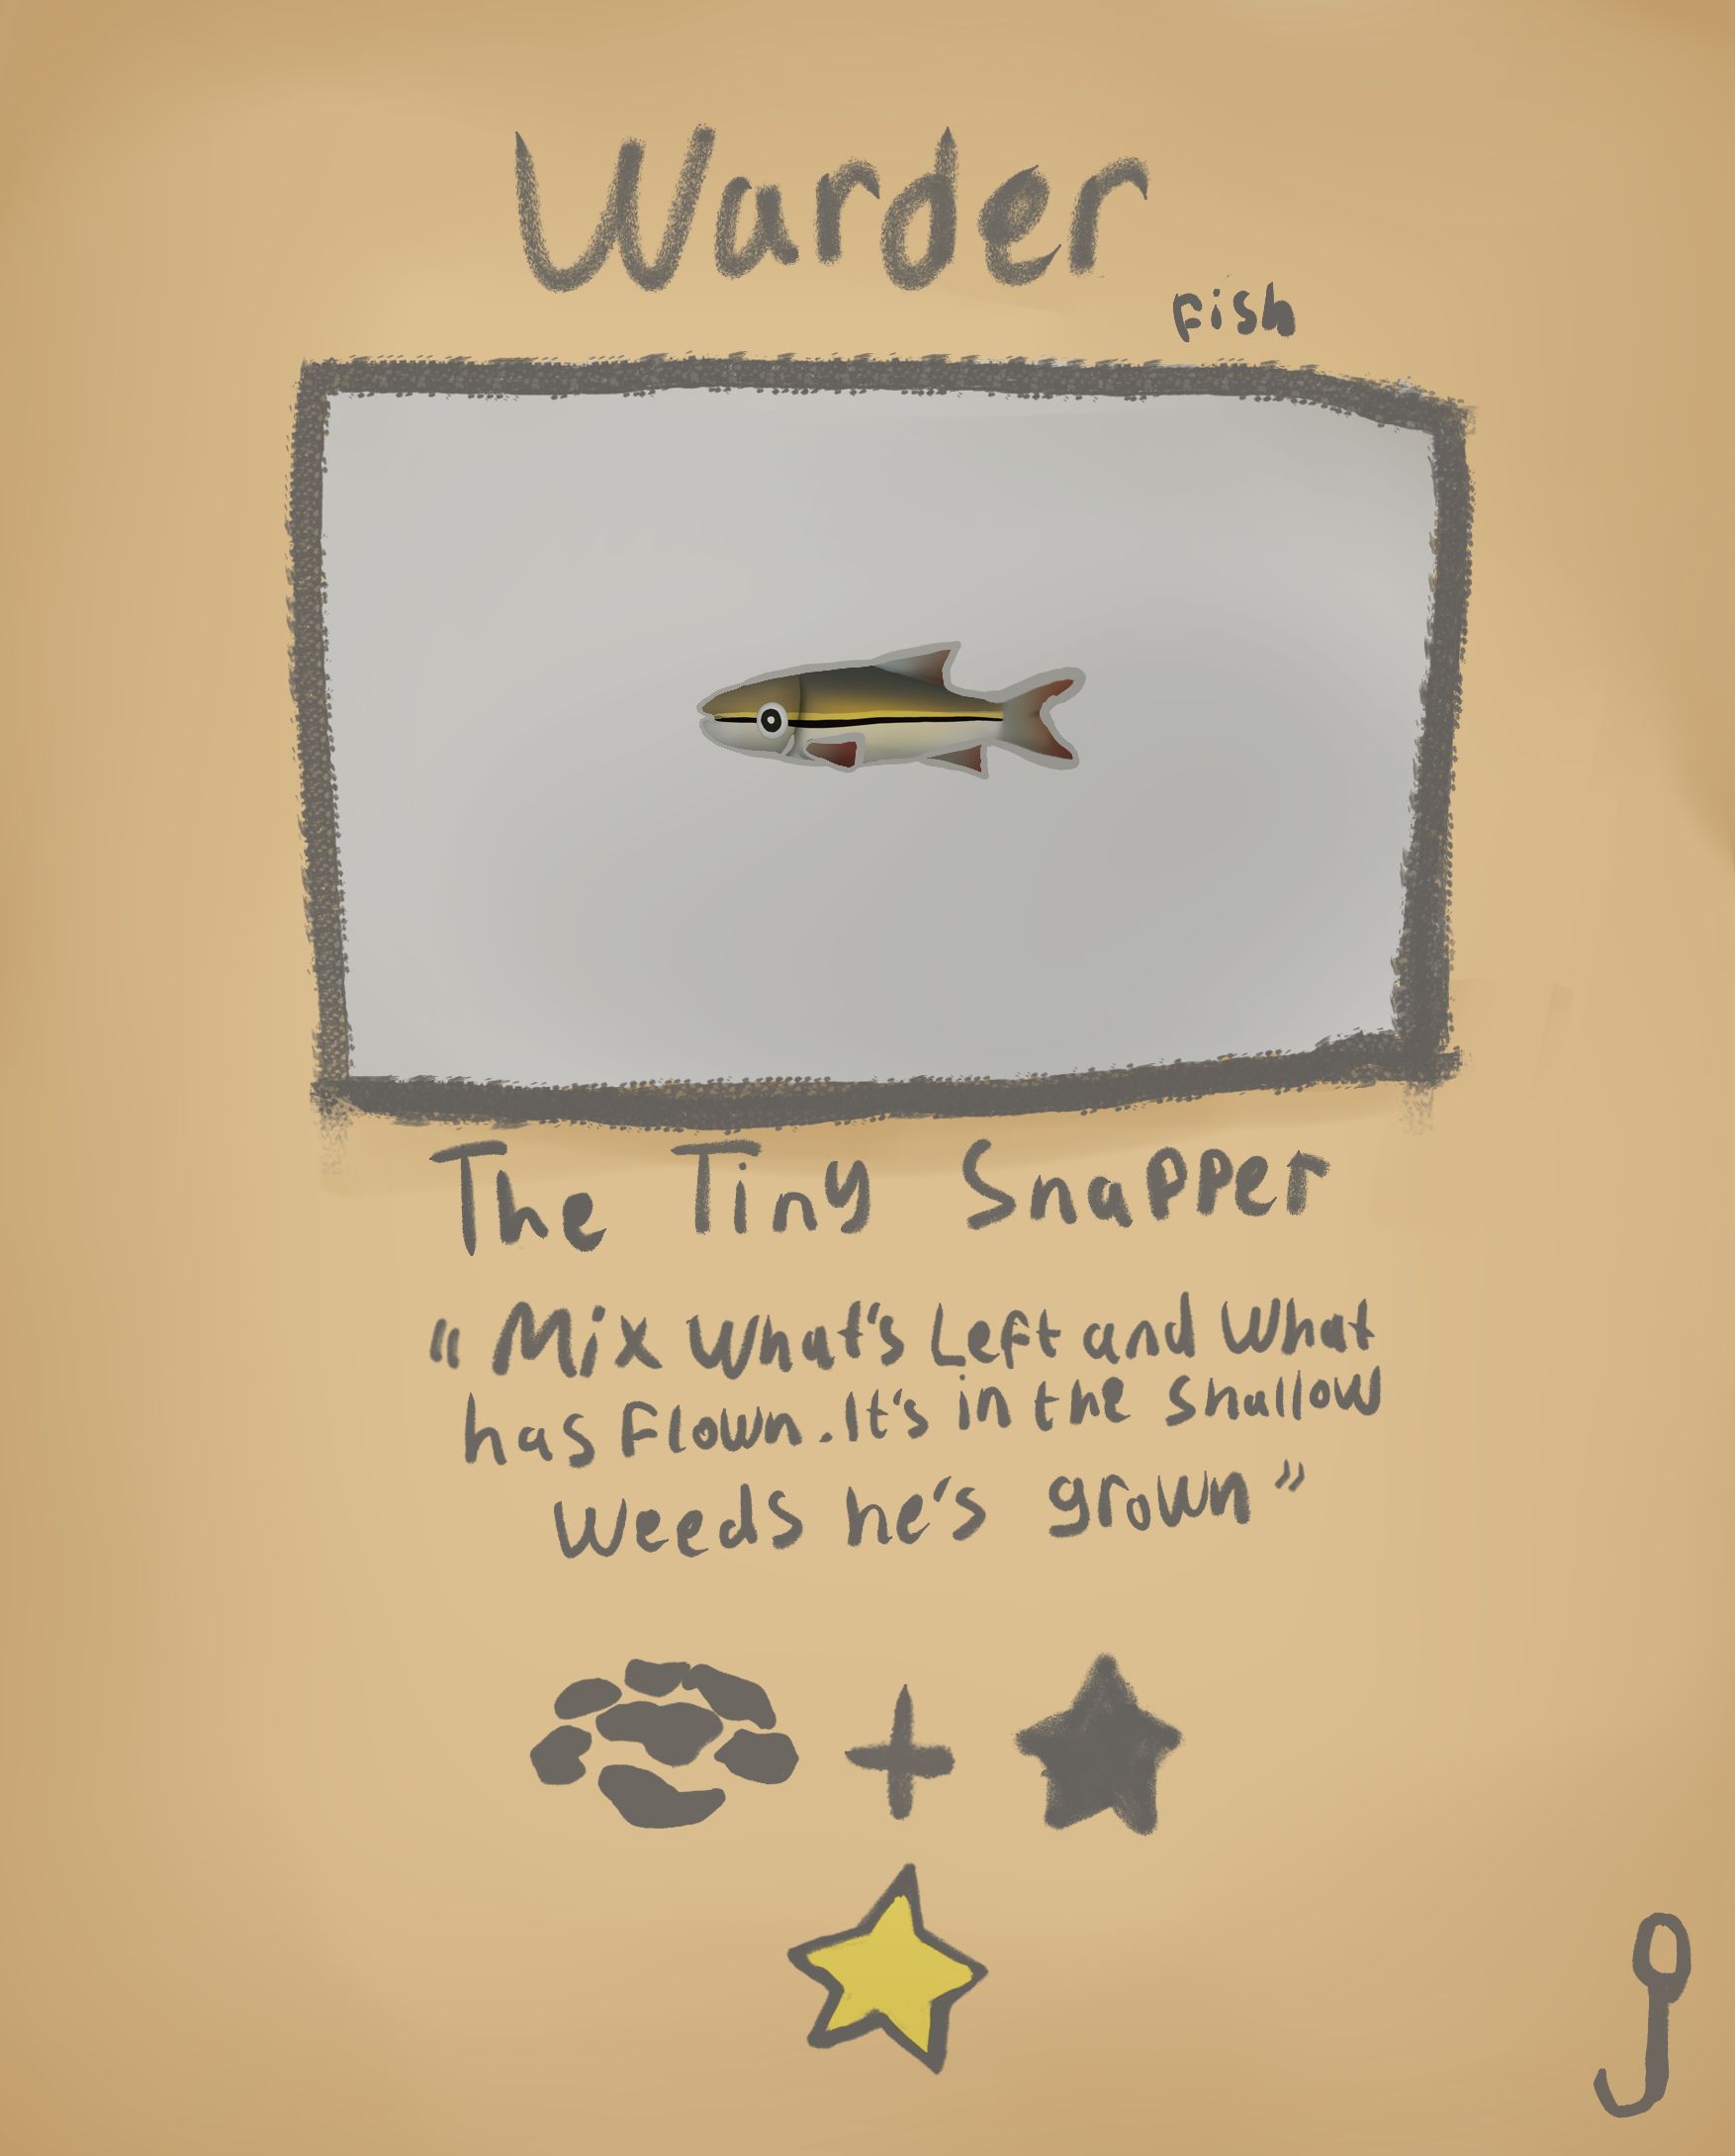 Warder
fish
The Tiny Snapper
"Mix What's Left and What
has Flown. It's in the shallow
Weeds he's grown"